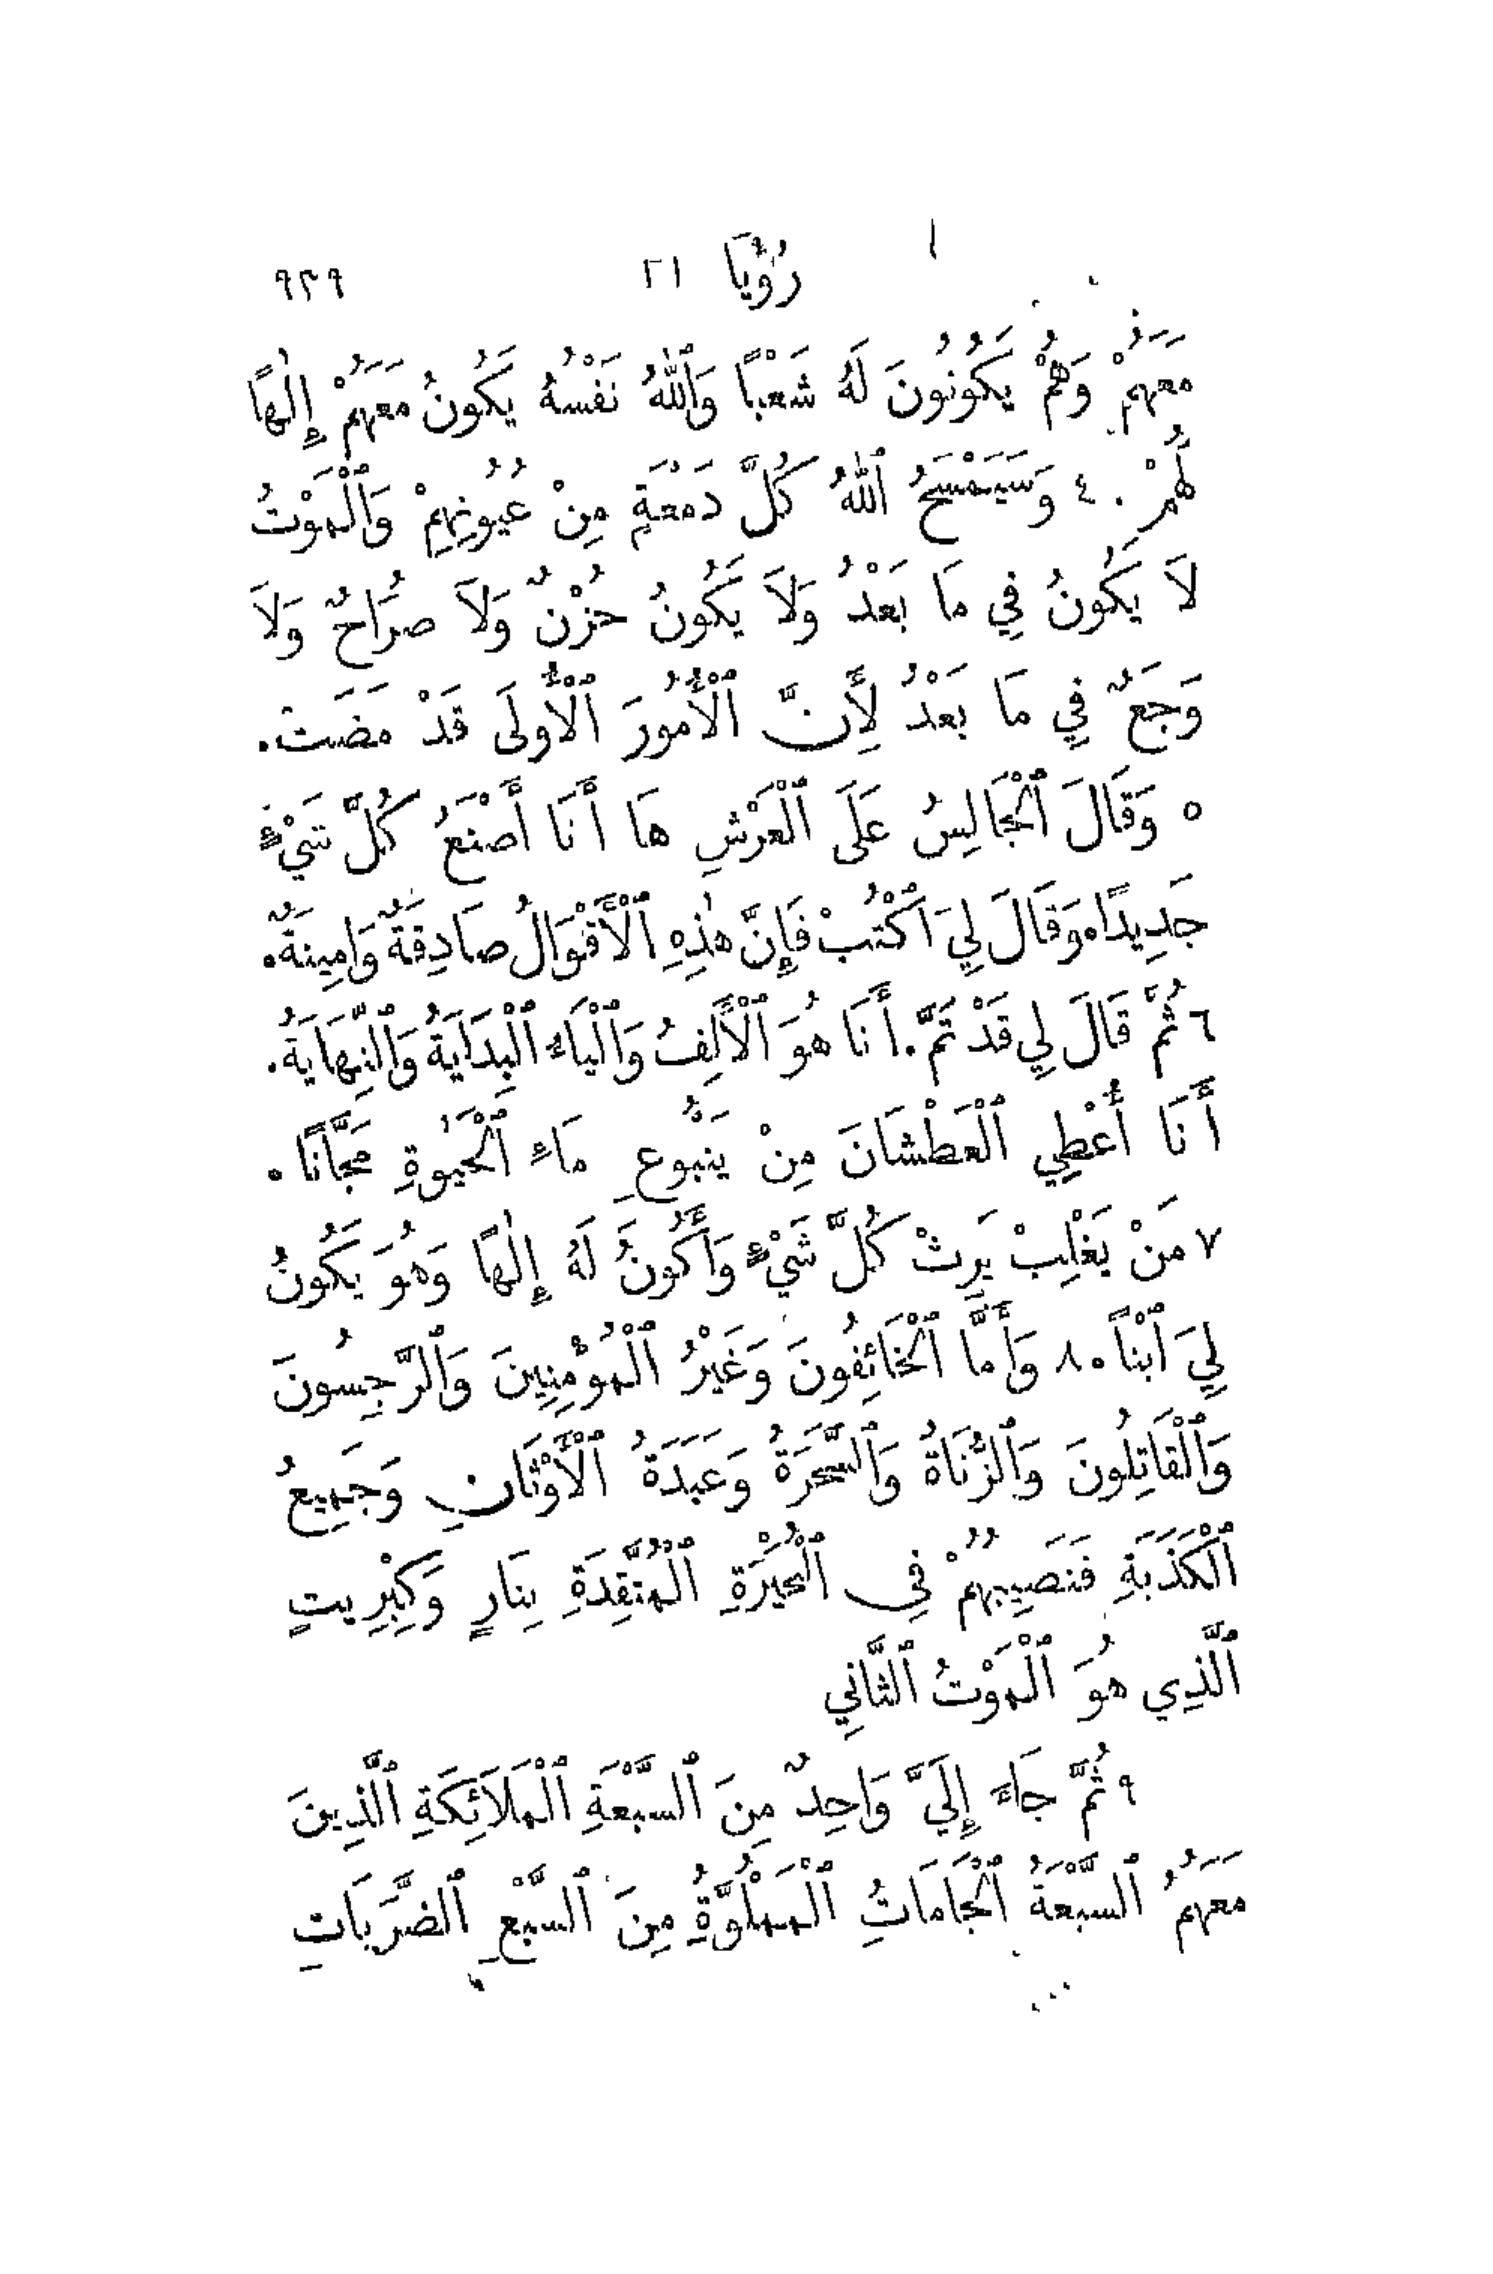 رُؤْيَا ٢١ ٩٣٩
مَعَهُمْ وَهُمْ يَكُونُونَ لَهُ شَعْبًا وَٱللهُ نَفْسُهُ يَكُونُ مَعَهُمْ إِلٰهًا
لَهُمْ. ٤ وَسَيَمْسَحُ ٱللهُ كُلَّ دَمْعَةٍ مِنْ عُيُونِهِمْ وَٱلْمَوْتُ
لَا يَكُونُ فِي مَا بَعْدُ وَلَا يَكُونُ حُزْنٌ وَلَا صُرَاخٌ وَلَا
وَجَعٌ فِي مَا بَعْدُ لِأَنَّ ٱلْأُمُورَ ٱلْأُولَى قَدْ مَضَتْ.
٥ وَقَالَ ٱلْجَالِسُ عَلَى ٱلْعَرْشِ هَا أَنَا أَصْنَعُ كُلَّ شَيْءٍ
جَدِيدًا. وَقَالَ لِيَ ٱكْتُبْ فَإِنَّ هٰذِهِ ٱلْأَقْوَالَ صَادِقَةٌ وَامِينَةٌ.
٦ ثُمَّ قَالَ لِي قَدْ تَمَّ. أَنَا هُوَ ٱلْأَلِفُ وَٱلْيَاءُ ٱلْبِدَايَةُ وَٱلنِّهَايَةُ.
أَنَا أُعْطِي ٱلْعَطْشَانَ مِنْ يَنْبُوعِ مَاءِ ٱلْحَيٰوةِ مَجَّانًا.
٧ مَنْ يَغْلِبْ يَرِثْ كُلَّ شَيْءٍ وَأَكُونُ لَهُ إِلٰهًا وَهُوَ يَكُونُ
لِيَ ٱبْنًا. ٨ وَأَمَّا ٱلْخَائِفُونَ وَغَيْرُ ٱلْمُؤْمِنِينَ وَٱلرَّجِسُونَ
وَٱلْقَاتِلُونَ وَٱلزُّنَاةُ وَٱلسَّحَرَةُ وَعَبَدَةُ ٱلْأَوْثَانِ وَجَمِيعُ
ٱلْكَذَبَةِ فَنَصِيبُهُمْ فِي ٱلْبُحَيْرَةِ ٱلْمُتَّقِدَةِ بِنَارٍ وَكِبْرِيتٍ
ٱلَّذِي هُوَ ٱلْمَوْتُ ٱلثَّانِي
٩ ثُمَّ جَاءَ إِلَيَّ وَاحِدٌ مِنَ ٱلسَّبْعَةِ ٱلْمَلَائِكَةِ ٱلَّذِينَ
مَعَهُمُ ٱلسَّبْعَةُ ٱلْجَامَاتُ ٱلْمَمْلُوَّةُ مِنَ ٱلسَّبْعِ ٱلضَّرَبَاتِ